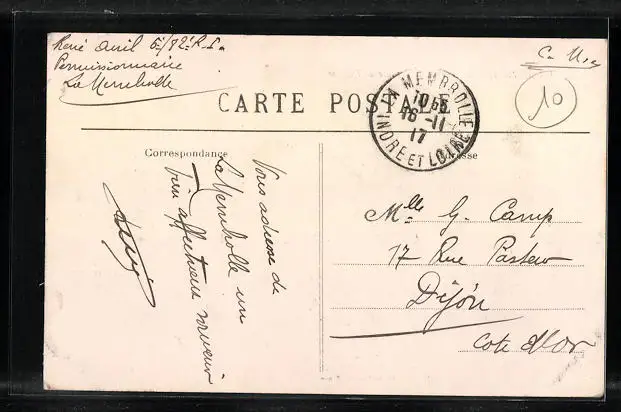 René Avril 6e/82e R.I.
Permissionnaire
La Membrolle
C. M.
10
CARTE POSTALE
LA MEMBROLLE
10 55
16 -11
17
INDRE ET LOIRE
Correspondance
Adresse
Vous adresse de
La Membrolle un
bien affectueux souvenir
Mlle G. Camp
17 Rue Pasteur
Dijon
Cote d'Or